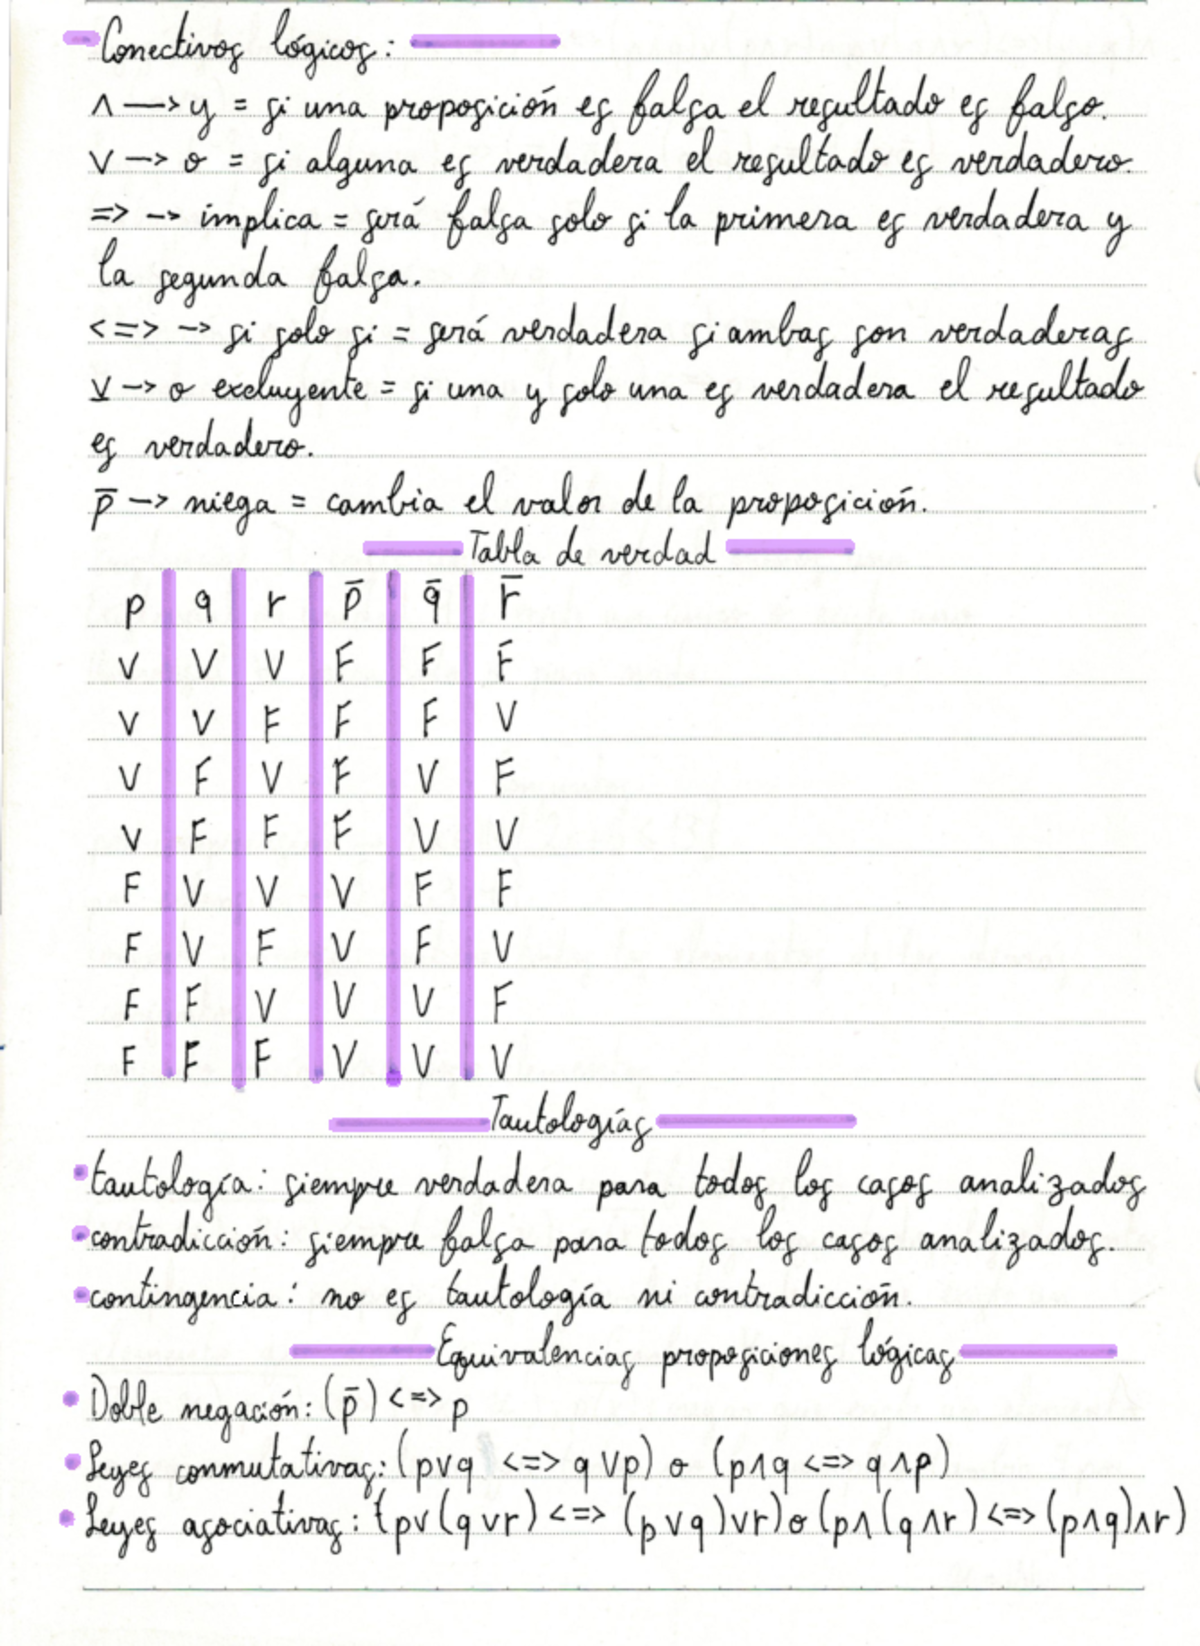 Conectivos lógicos:
∧ —> y = si una proposición es falsa el resultado es falso.
∨ —> o = si alguna es verdadera el resultado es verdadero.
=> —> implica = será falsa solo si la primera es verdadera y
la segunda falsa.
<=> —> si solo si = será verdadera si ambas son verdaderas
⊻ —> o excluyente = si una y solo una es verdadera el resultado
es verdadero.
p̄ —> niega = cambia el valor de la proposición.
Tabla de verdad
p q r p̄ q̄ r̄
V V V F F F
V V F F F V
V F V F V F
V F F F V V
F V V V F F
F V F V F V
F F V V V F
F F F V V V
Tautologías
tautología: siempre verdadera para todos los casos analizados
contradicción: siempre falsa para todos los casos analizados.
contingencia: no es tautología ni contradicción.
Equivalencias proposiciones lógicas
Doble negación: (p̄) <=> p
Leyes conmutativas: (p∨q <=> q∨p) o (p∧q <=> q∧p)
Leyes asociativas: (p∨(q∨r) <=> (p∨q)∨r) o (p∧(q∧r) <=> (p∧q)∧r)